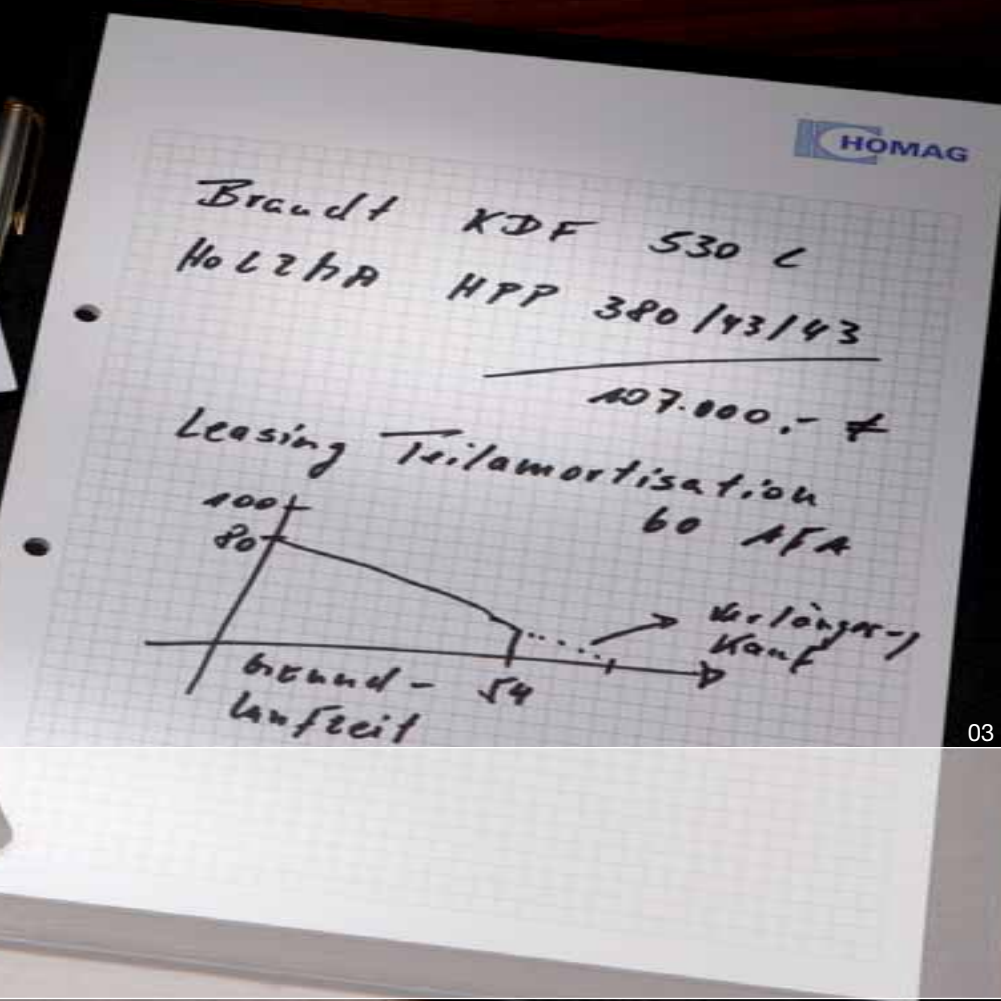 HOMAG
Brandt KDF 530 C
HOLZHA HPP 380/43/43
107.000,- €
Leasing Teilamortisation
60 AFA
100
80
Verlänger-,
Kauf
Grund- 54
laufzeit
03